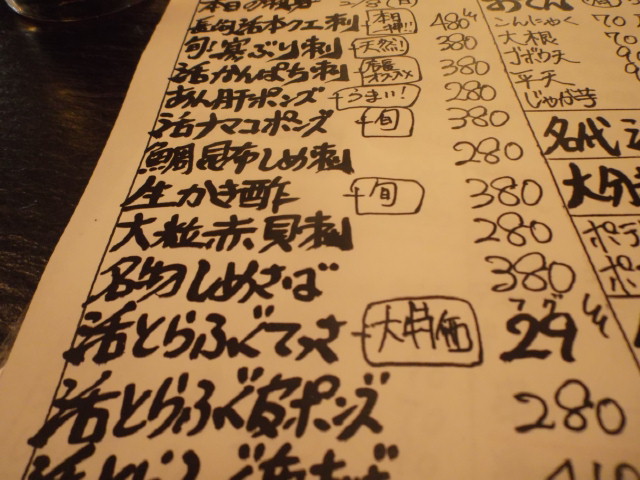 長崎活本クエ刺 本日一押!! 480
旬!寒ぶり刺 天然! 380
活かんぱち刺 オススメ 380
あん肝ポンズ うまい! 280
活ナマコポンズ 旬 380
鯛昆布しめ刺 280
生かき酢 旬 380
大粒赤貝刺 280
名物しめさば 380
活とらふぐてっさ 大特価 29
活とらふぐ皮ポンズ 280
活とらふぐ
おでん
こんにゃく 70
大根 70
ゴボウ天 90
平天 80
じゃが芋
名代
大分
ポテ
ポ